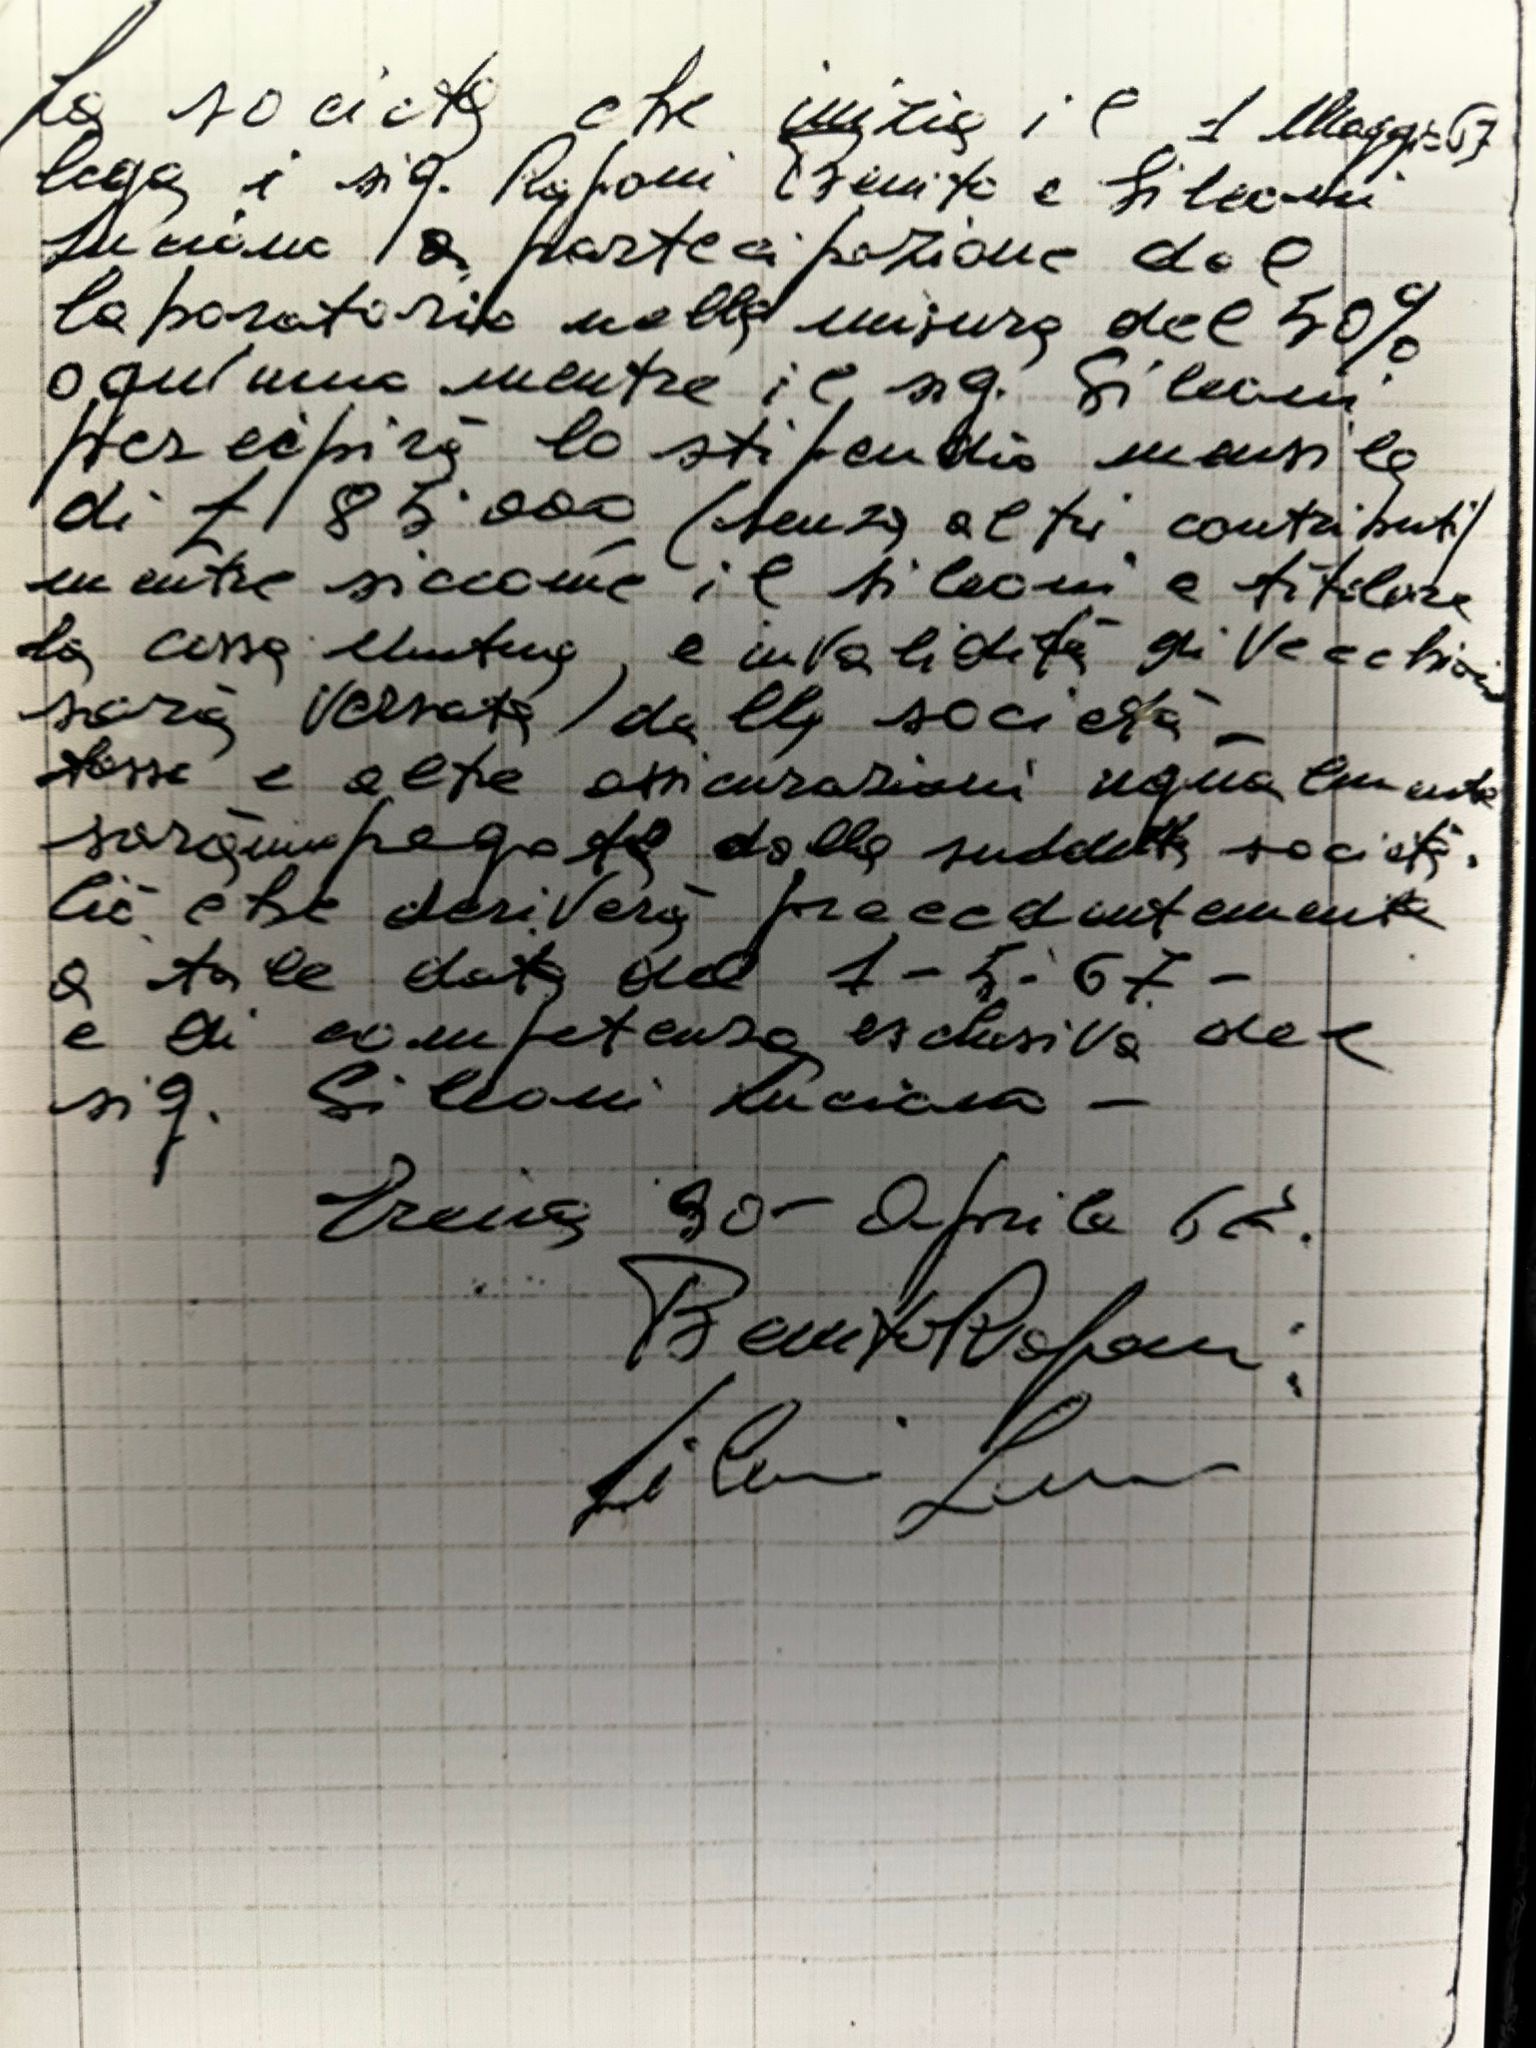 La società che inizia il 1 Maggio 67
lega i sig. Raponi Benito e Sileoni
Luciano a partecipazione del
laboratorio nella misura del 50%
ogn'uno mentre il sig. Sileoni
percipirà lo stipendio mensile
di £ 85.000 (senza altri contributi)
mentre siccome il Sileoni e titolare
la cassa Mutua, e invalidità di Vecchiaia
sarà versata dalla società -
tasse e altre assicurazioni ugualmente
saranno pagate dalla suddetta società.
Ciò che deriverà precedentemente
a tale data del 1-5-67-
e di competenza esclusiva del
sig. Sileoni Luciano -
Treia 30- Aprile 67.
Benito Raponi
Sileoni